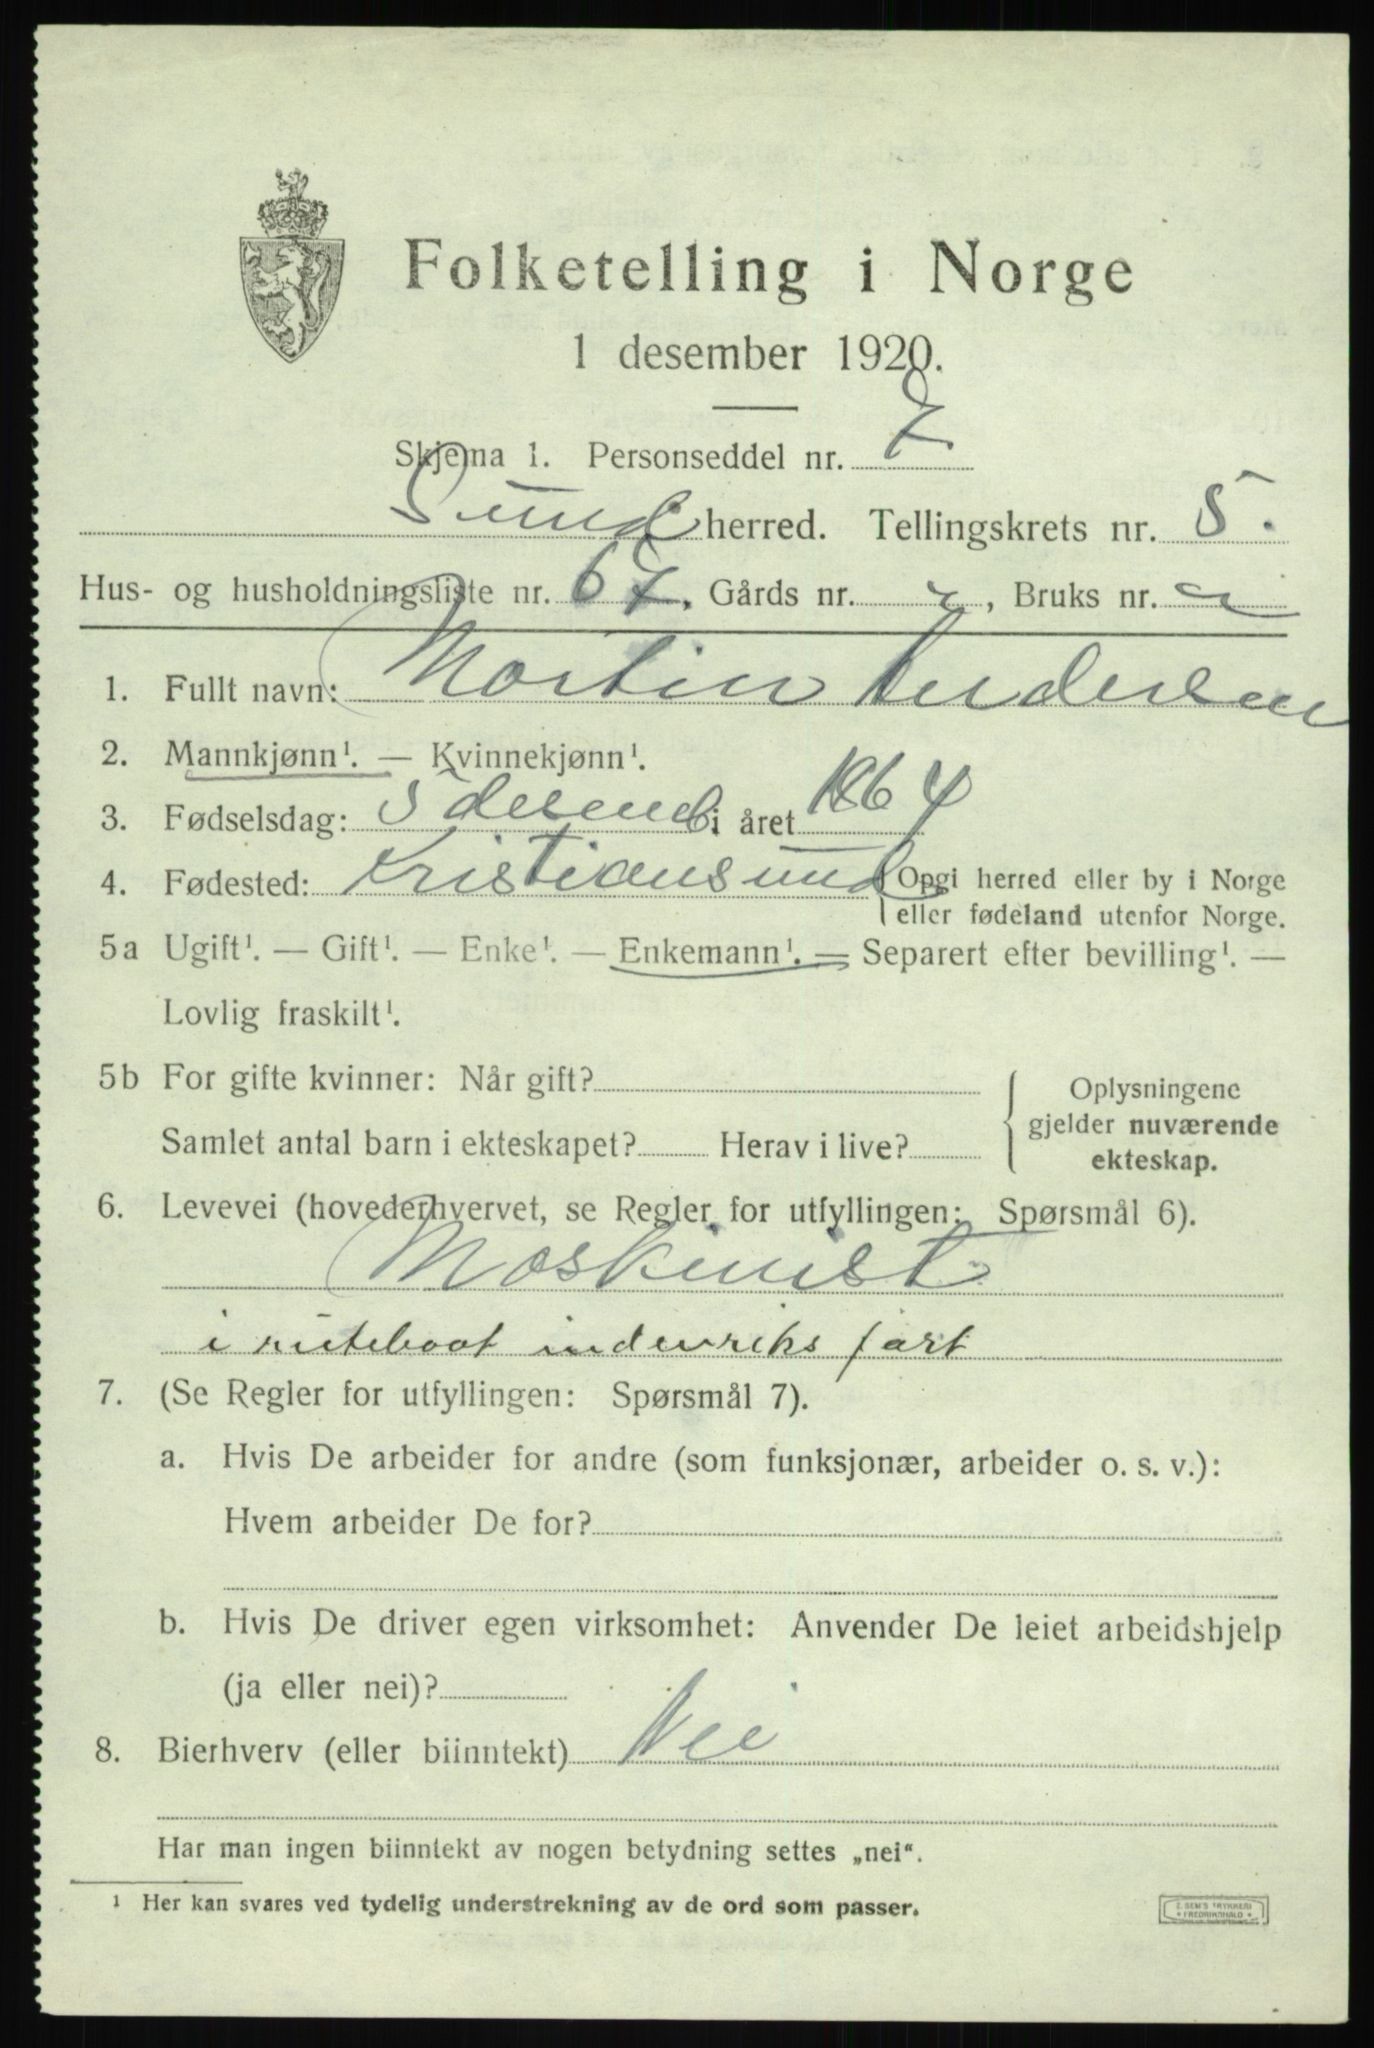 Folketelling i Norge
1 desember 1920.
Skjema 1. Personseddel nr. 7
Sund herred. Tellingskrets nr. 5.
Hus- og husholdningsliste nr. 67, Gårds nr. , Bruks nr.
1. Fullt navn: Martin Andersen
2. Mannkjønn¹. — Kvinnekjønn¹.
3. Fødselsdag: 5 desemb i året 1864
4. Fødested: Kristiansund Opgi herred eller by i Norge
eller fødeland utenfor Norge.
5a Ugift¹. — Gift¹. — Enke¹. — Enkemann¹. — Separert efter bevilling¹. —
Lovlig fraskilt¹.
5b For gifte kvinner: Når gift?
Samlet antal barn i ekteskapet? Herav i live?
Oplysningene
gjelder nuværende
ekteskap.
6. Levevei (hovederhvervet, se Regler for utfyllingen: Spørsmål 6).
Maskinist
i ruteboot indenriks fart
7. (Se Regler for utfyllingen: Spørsmål 7).
a. Hvis De arbeider for andre (som funksjonær, arbeider o. s. v.):
Hvem arbeider De for?
b. Hvis De driver egen virksomhet: Anvender De leiet arbeidshjelp
(ja eller nei)?
8. Bierhverv (eller biinntekt) Nei
Har man ingen biinntekt av nogen betydning settes „nei“.
¹ Her kan svares ved tydelig understrekning av de ord som passer.
E. SEM'S TRYKKERI
* FREDRIKSHALD *